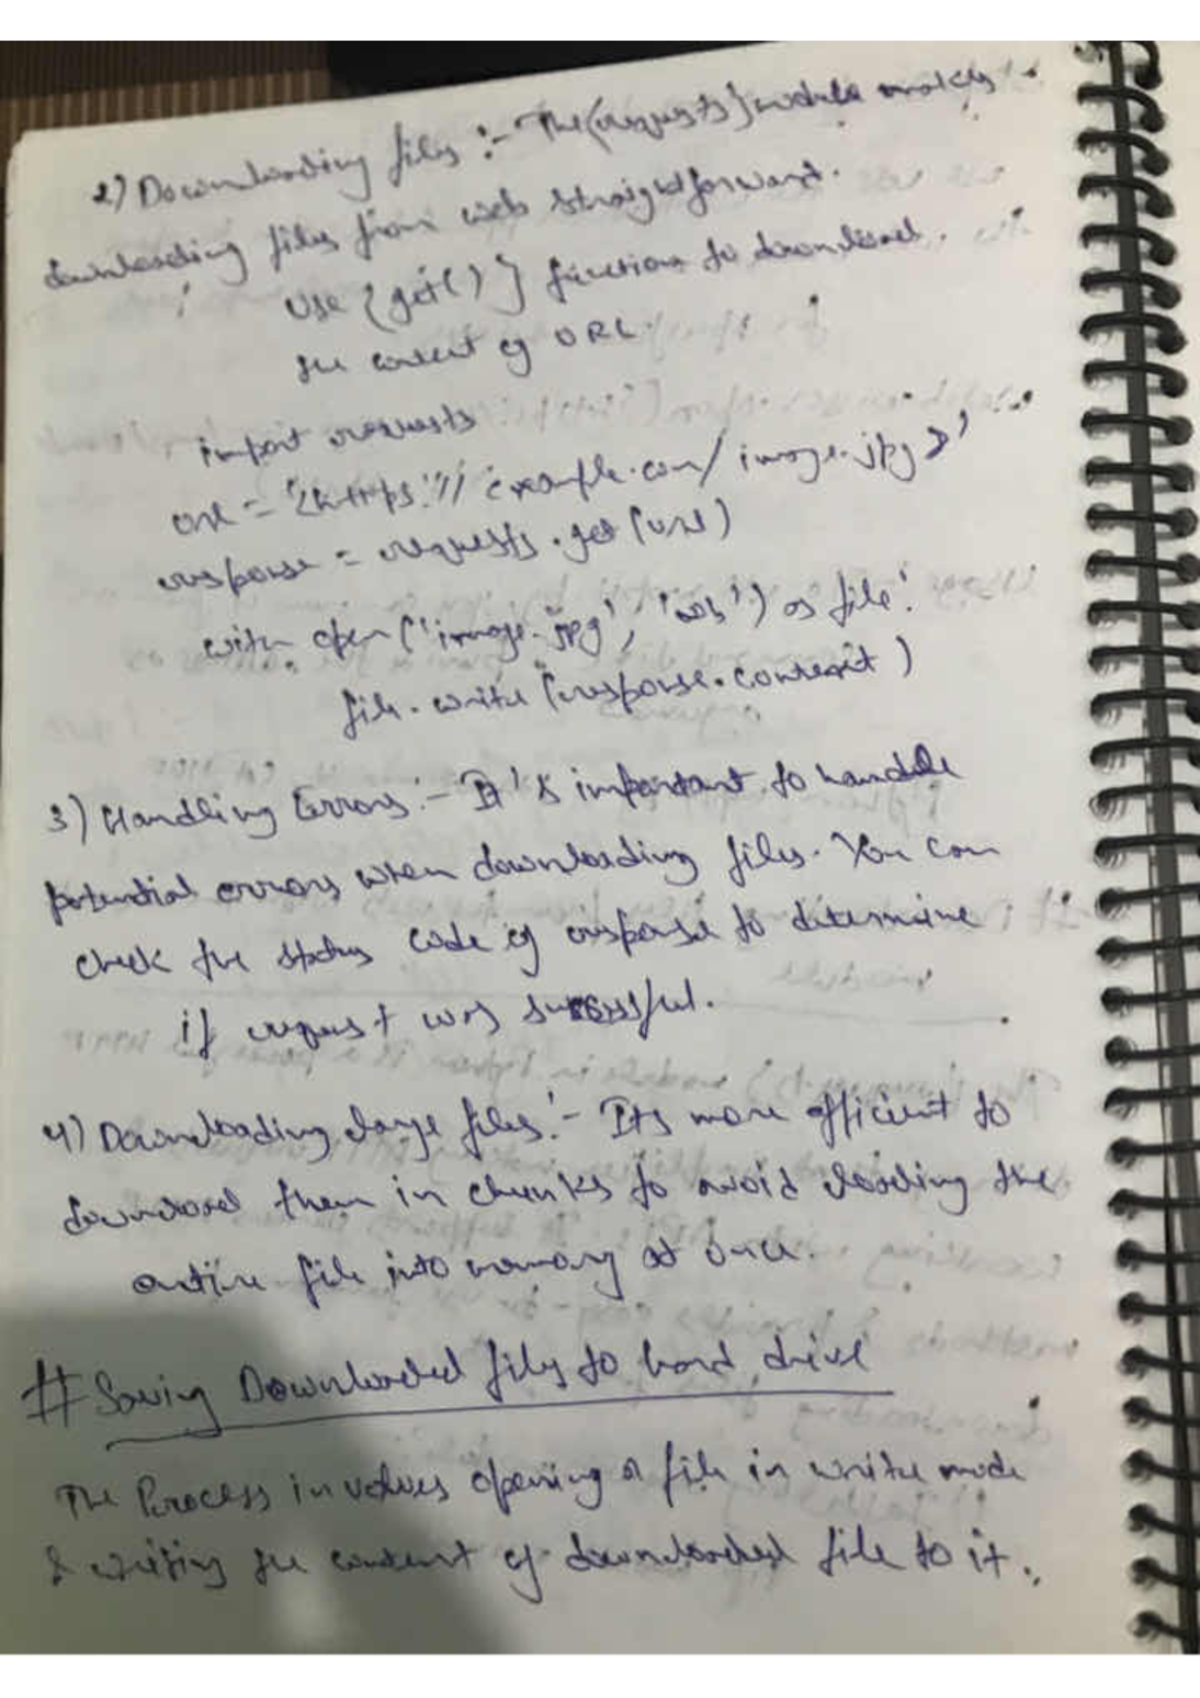 2) Downloading files :- The {requests} module makes
downloading files from web straightforward.
Use {get()} function to download
the content of URL.
import requests
url = '<https://example.com/image.jpg>'
response = requests.get(url)
with open('image.jpg', 'wb') as file:
file.write(response.content)
3) Handling Errors :- It's important to handle
potential errors when downloading files. You can
check the status code of response to determine
if request was successful.
4) Downloading large files :- Its more efficient to
download them in chunks to avoid loading the
entire file into memory at once.
# Saving Downloaded files to hard drive
The Process involves opening a file in write mode
& writing the content of downloaded file to it.